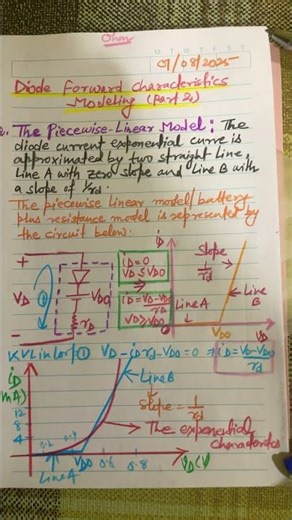 Ohm
M T W T F S T
01/08/2025
Diode Forward Characteristics
Modeling (Part 2)
2. The Piecewise-Linear Model: The
diode current exponential curve is
approximated by two straight line,
Line A with zero slope and Line B with
a slope of 1/rd.
The piecewise linear model/battery
plus resistance model is represented by
the circuit below.
iD
+
+
iD = 0
VD ≤ VDO
Slope
1/rd
VD
1
VDO
iD = VD-VDO/rd
VD ≥ VDO
Line A
Line
B
rD
0
VDO
VD
KVL in loop 1 VD - iD rd - VDO = 0 ⇒ iD = VD-VDO/rd
iD
(mA)
Line B
12
8
4
Slope = 1/rd
The exponential
characteristics
0.2
0.4
VDO
0.6
0.8
VD(V)
Line A